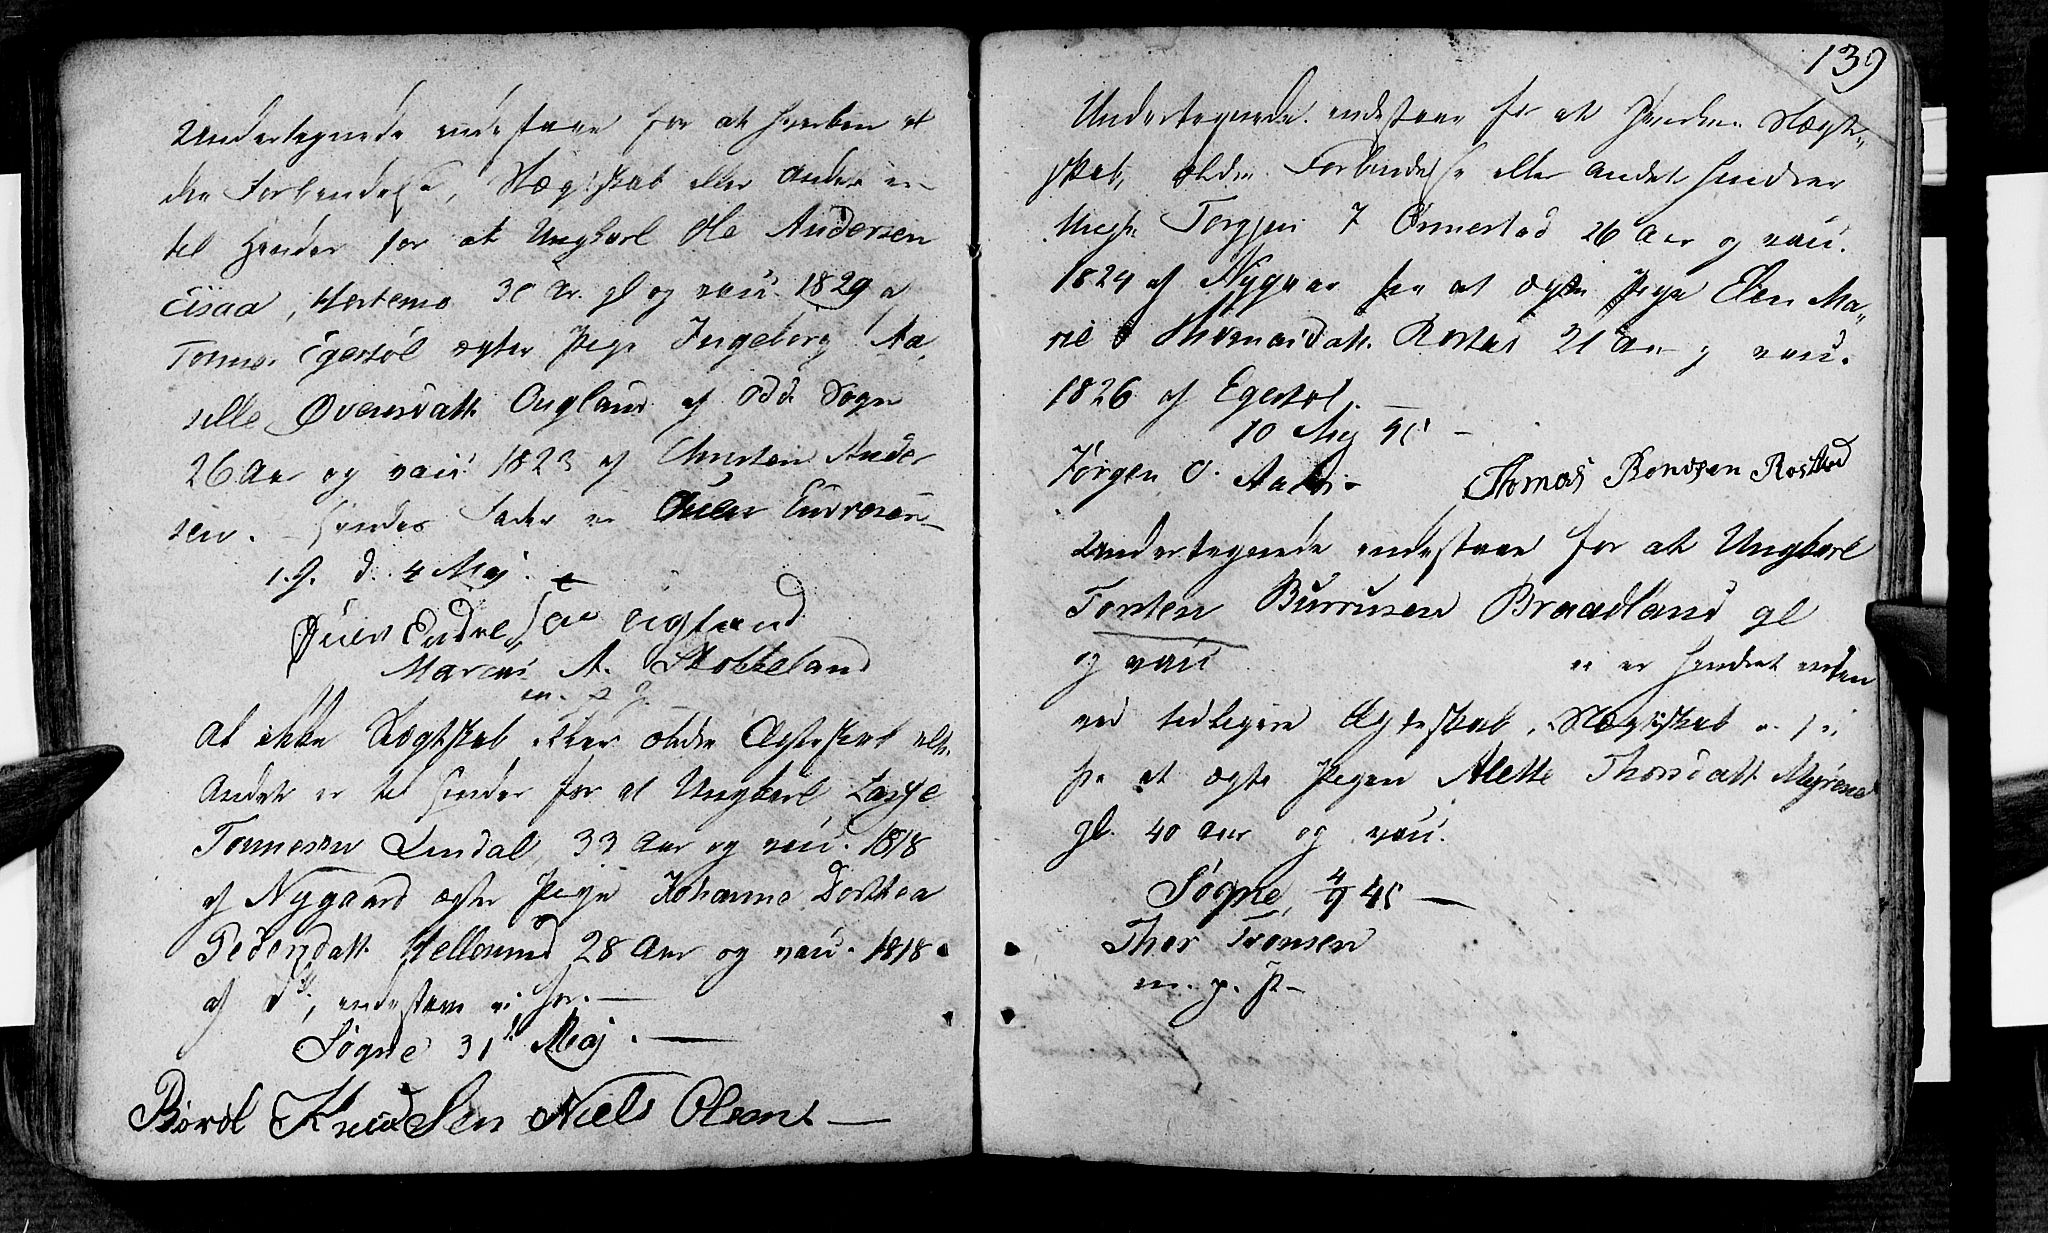 Undertegnede indestaae for at hverken æl-
dre Forbindelse, Slægtskab eller Andet er
til Hinder for at Ungkarl Ole Andersen
Eisaa, Hortemo 30 Ar. gl og vacc. 1829 a
Tønnes Egestøl ægter Pige Ingeborg Aa-
selle Øvensdatt. Augland af Odd. Sogn
26 Aar og vacc. 1823 af Christen Ander
sen. - Hendes Fader er Øuen Endresen -
d. 4 Maj.
Øuen Endresen Augland
Marcus A. Stokkeland
m. p. p.
At ikke Slægtskab eller ældre Ægteskab eller
Andet er til Hinder for at Ungkarl Lasse
Tønnesen Lindal, 33 Aar og vacc. 1818
af Nygaard ægter Pige Johanne Dorthea
Pedersdatt. Hellesund 28 Aar og vacc. 1818
af d°, indestaae vi for. -
Søgne 31t Maj. -
Børøl Knudsen Niels Olsen -
139
Undertegnede indestaae for at hverken Slægt-
skab, ældre Forbindelse eller Andet hindrer
Ungk. Torgjen Ørnestad 26 Aar og vacc.
1824 af Nygaar for at ægte Pige Elen Ma-
rie Thomasdatt. Rostad 21 Aar og vacc.
1826 af Egestøl. -
10 Aug 45 -
Jørgen O.
Thomas Bendsen Rostad
Undertegnede indestaae for at Ungkarl
Torsten Burrusen Braadland gl
og vacc er hindret enten
ved tidligere Ægteskab, Slægtskab
for at ægte Pigen Alette Thorsdatt. Myrene
gl. 40 Aar og vacc.
Søgne, 4/9 45 -
Thor Tronsen
m. p. p -